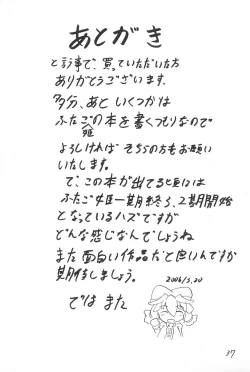 あとがき
と言う事で、買っていただいた方
ありがとうございます.
多分、あと いくつかは
ふたご姫の本を書くつもりなので
よろしければ そちらの方もお願い
いたします。
で、この本が出てる頃には
ふたご姫一期終了、2期開始
となっているハズですが
どんな感じなんでしょうね
また 面白い作品だと良いんですが
期待しましょう。
2006/3.20
では また
37